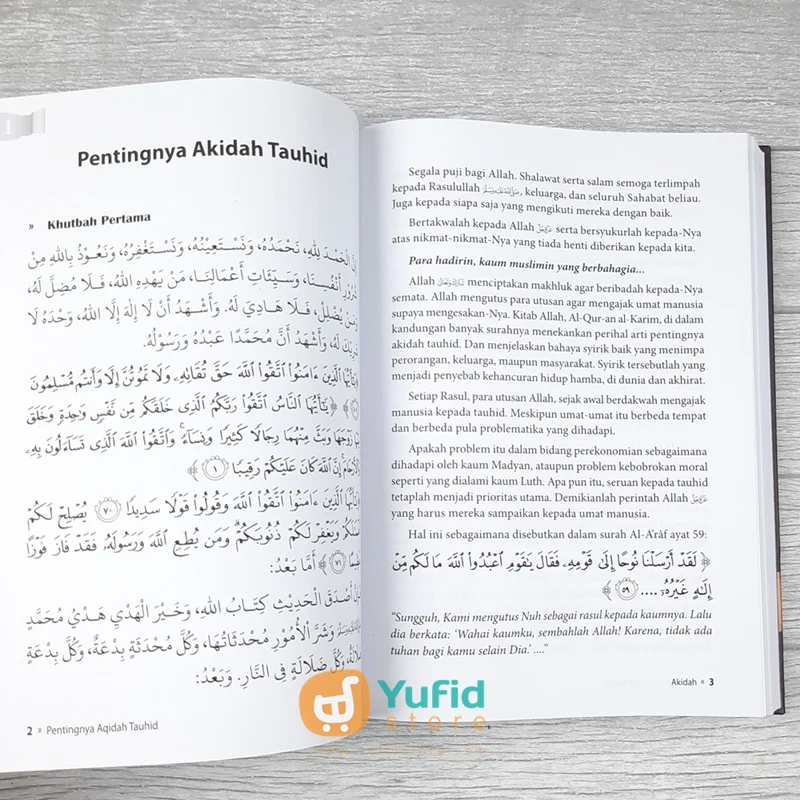 1
Pentingnya Akidah Tauhid
» Khutbah Pertama
إِنَّ الْحَمْدَ لِلهِ، نَحْمَدُهُ، وَنَسْتَعِيْنُهُ، وَنَسْتَغْفِرُهُ، وَنَعُوْذُ بِاللهِ مِنْ
شُرُوْرِ أَنْفُسِنَا، وَسَيِّئَاتِ أَعْمَالِنَا، مَنْ يَهْدِهِ اللهُ، فَلَا مُضِلَّ لَهُ،
وَمَنْ يُضْلِلْ، فَلَا هَادِيَ لَهُ. وَأَشْهَدُ أَنْ لَا إِلَهَ إِلَّا اللهُ، وَحْدَهُ لَا
شَرِيْكَ لَهُ، وَأَشْهَدُ أَنَّ مُحَمَّدًا عَبْدُهُ وَرَسُوْلُهُ.
يَٰٓأَيُّهَا ٱلَّذِينَ ءَامَنُوا۟ ٱتَّقُوا۟ ٱللَّهَ حَقَّ تُقَاتِهِۦ وَلَا تَمُوتُنَّ إِلَّا وَأَنتُم مُّسْلِمُونَ
﴿ يَٰٓأَيُّهَا ٱلنَّاسُ ٱتَّقُوا۟ رَبَّكُمُ ٱلَّذِى خَلَقَكُم مِّن نَّفْسٍ وَٰحِدَةٍ وَخَلَقَ
مِنْهَا زَوْجَهَا وَبَثَّ مِنْهُمَا رِجَالًا كَثِيرًا وَنِسَآءً ۚ وَٱتَّقُوا۟ ٱللَّهَ ٱلَّذِى تَسَآءَلُونَ بِهِۦ
وَٱلْأَرْحَامَ ۚ إِنَّ ٱللَّهَ كَانَ عَلَيْكُمْ رَقِيبًا ١ ﴾
يَٰٓأَيُّهَا ٱلَّذِينَ ءَامَنُوا۟ ٱتَّقُوا۟ ٱللَّهَ وَقُولُوا۟ قَوْلًا سَدِيدًا ٧٠ يُصْلِحْ لَكُمْ
أَعْمَٰلَكُمْ وَيَغْفِرْ لَكُمْ ذُنُوبَكُمْ ۗ وَمَن يُطِعِ ٱللَّهَ وَرَسُولَهُۥ فَقَدْ فَازَ فَوْزًا
عَظِيمًا ٧١ ﴾ أَمَّا بَعْدُ:
فَإِنَّ أَصْدَقَ الْحَدِيْثِ كِتَابُ اللهِ، وَخَيْرَ الْهَدْيِ هَدْيُ مُحَمَّدٍ
ﷺ وَشَرَّ الْأُمُوْرِ مُحْدَثَاتُهَا، وَكُلَّ مُحْدَثَةٍ بِدْعَةٌ، وَكُلَّ بِدْعَةٍ
ضَلَالَةٌ، وَكُلَّ ضَلَالَةٍ فِي النَّارِ. وَبَعْدُ:
2 » Pentingnya Aqidah Tauhid
Segala puji bagi Allah. Shalawat serta salam semoga terlimpah
kepada Rasulullah ﷺ, keluarga, dan seluruh Sahabat beliau.
Juga kepada siapa saja yang mengikuti mereka dengan baik.
Bertakwalah kepada Allah عَزَّوَجَلَّ serta bersyukurlah kepada-Nya
atas nikmat-nikmat-Nya yang tiada henti diberikan kepada kita.
Para hadirin, kaum muslimin yang berbahagia...
Allah تَبَارَكَ وَتَعَالَى menciptakan makhluk agar beribadah kepada-Nya
semata. Allah mengutus para utusan agar mengajak umat manusia
supaya mengesakan-Nya. Kitab Allah, Al-Qur-an al-Karim, di dalam
kandungan banyak surahnya menekankan perihal arti pentingnya
akidah tauhid. Dan menjelaskan bahaya syirik baik yang menimpa
perorangan, keluarga, maupun masyarakat. Syirik tersebutlah yang
menjadi penyebab kehancuran hidup hamba, di dunia dan akhirat.
Setiap Rasul, para utusan Allah, sejak awal berdakwah mengajak
manusia kepada tauhid. Meskipun umat-umat itu berbeda tempat
dan berbeda pula problematika yang dihadapi.
Apakah problem itu dalam bidang perekonomian sebagaimana
dihadapi oleh kaum Madyan, ataupun problem kebobrokan moral
seperti yang dialami kaum Luth. Apa pun itu, seruan kepada tauhid
tetaplah menjadi prioritas utama. Demikianlah perintah Allah عَزَّوَجَلَّ
yang harus mereka sampaikan kepada umat manusia.
Hal ini sebagaimana disebutkan dalam surah Al-A'râf ayat 59:
﴿ لَقَدْ أَرْسَلْنَا نُوحًا إِلَىٰ قَوْمِهِۦ فَقَالَ يَٰقَوْمِ ٱعْبُدُوا۟ ٱللَّهَ مَا لَكُم مِّنْ
إِلَٰهٍ غَيْرُهُۥٓ .... ٥٩ ﴾
"Sungguh, Kami mengutus Nuh sebagai rasul kepada kaumnya. Lalu
dia berkata: 'Wahai kaumku, sembahlah Allah! Karena, tidak ada
tuhan bagi kamu selain Dia.' ...."
Akidah « 3
Yufid
store